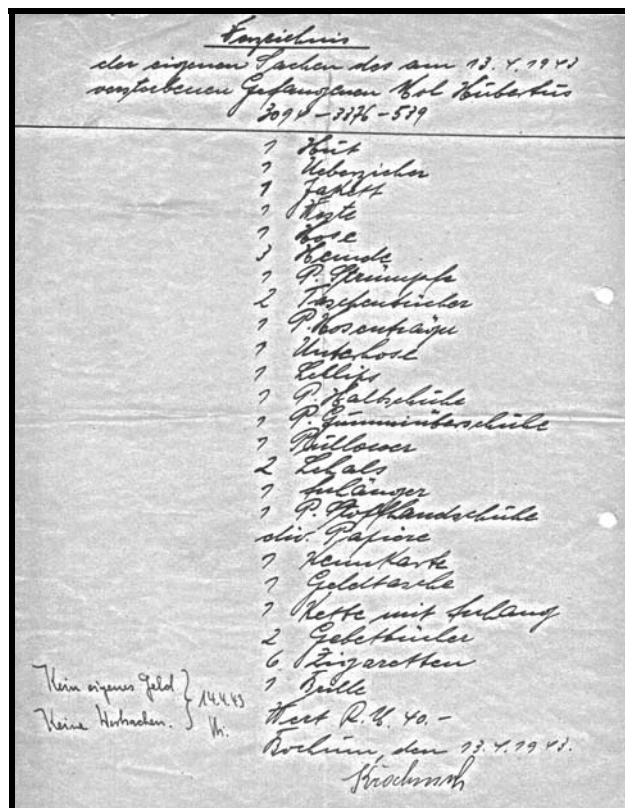 Verzeichnis
der eigenen Sachen des am 13.4.1943
verstorbenen Gefangenen Kol Hubertus
3094-3376-539
1 Hut
1 Ueberzieher
1 Jakett
1 Weste
1 Hose
3 Hemde
1 P. Strümpfe
2 Taschentücher
1 P. Hosenträger
1 Unterhose
1 Schlips
1 P. Halbschuhe
1 P. Gummiüberschuhe
1 Pullower
2 Schals
1 Anhänger
1 P. Stoffhandschuhe
div. Papiere
1 Kennkarte
1 Geldtasche
1 Kette mit Anhang
2 Gebetbücher
6 Zigaretten
1 Brille
Kein eigenes Geld
Keine Wertsachen. } 14.4.43
Wert R.M. 40.-
Bochum, den 13.4.1943.